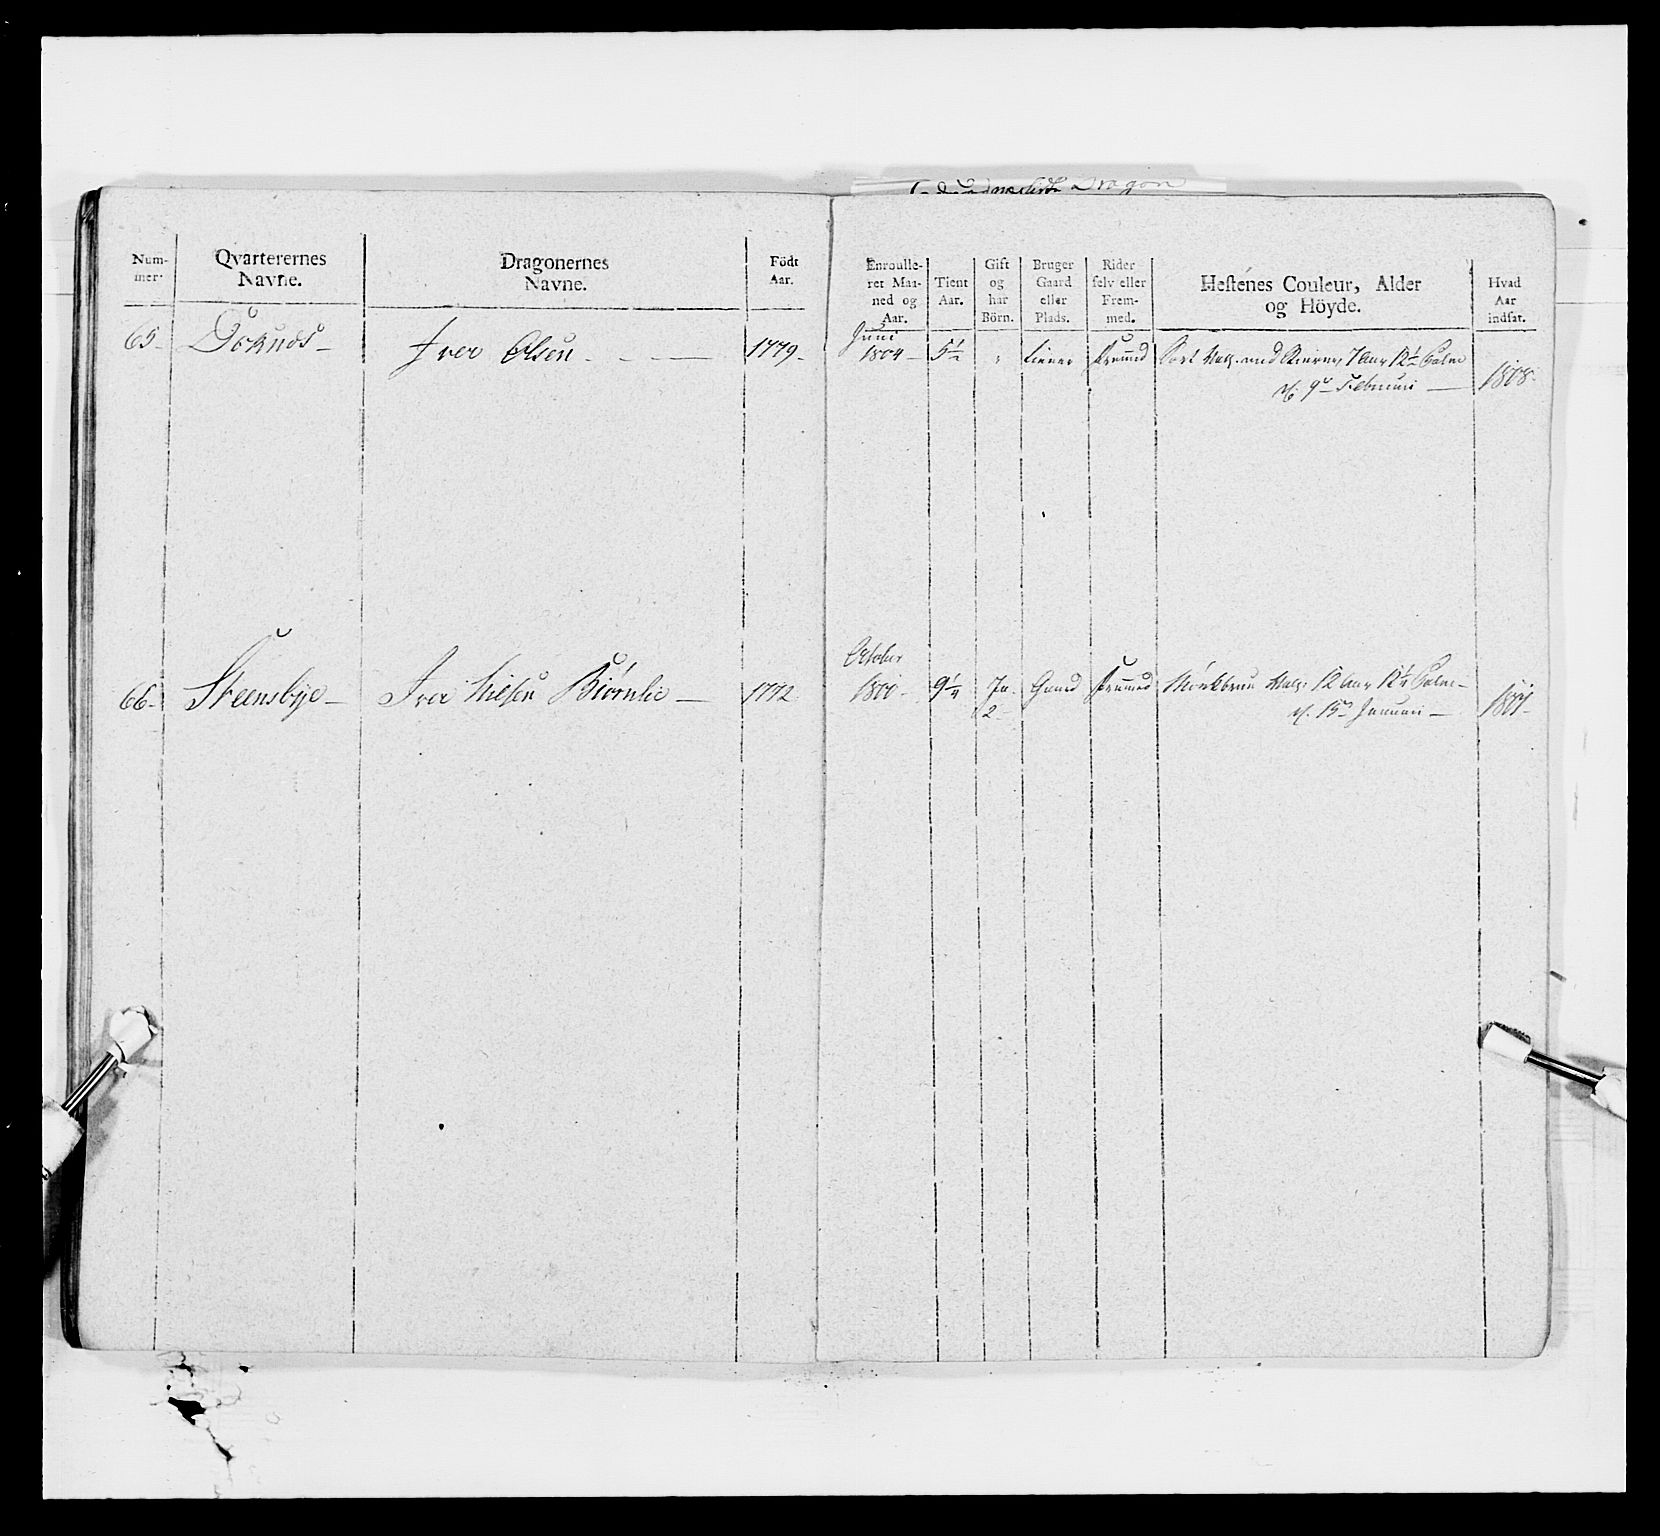 Dragon
Num-
mer.
Qvarterernes
Navne.
Dragonernes
Navne.
Födt
Aar.
Enroulle-
ret Maa-
ned og
Aar.
Tient
Aar.
Gift
og
har
Börn.
Bruger
Gaard
eller
Plads.
Rider
selv eller
Frem-
med.
Hestenes Couleur, Alder
og Höyde.
Hvad
Aar
indsat.
65. Iver Olsen 1779. Juni 1804 5½ " tiener fremmed Sort 7 Aar 12½ Palm
9de Februari 1808.
66. Steensbye Iver Nilsen Biörnlie 1772 October 1800 9¼ Ja Gaard fremmed Mörkbrun 12 Aar 12¼ Palm
2 Januari